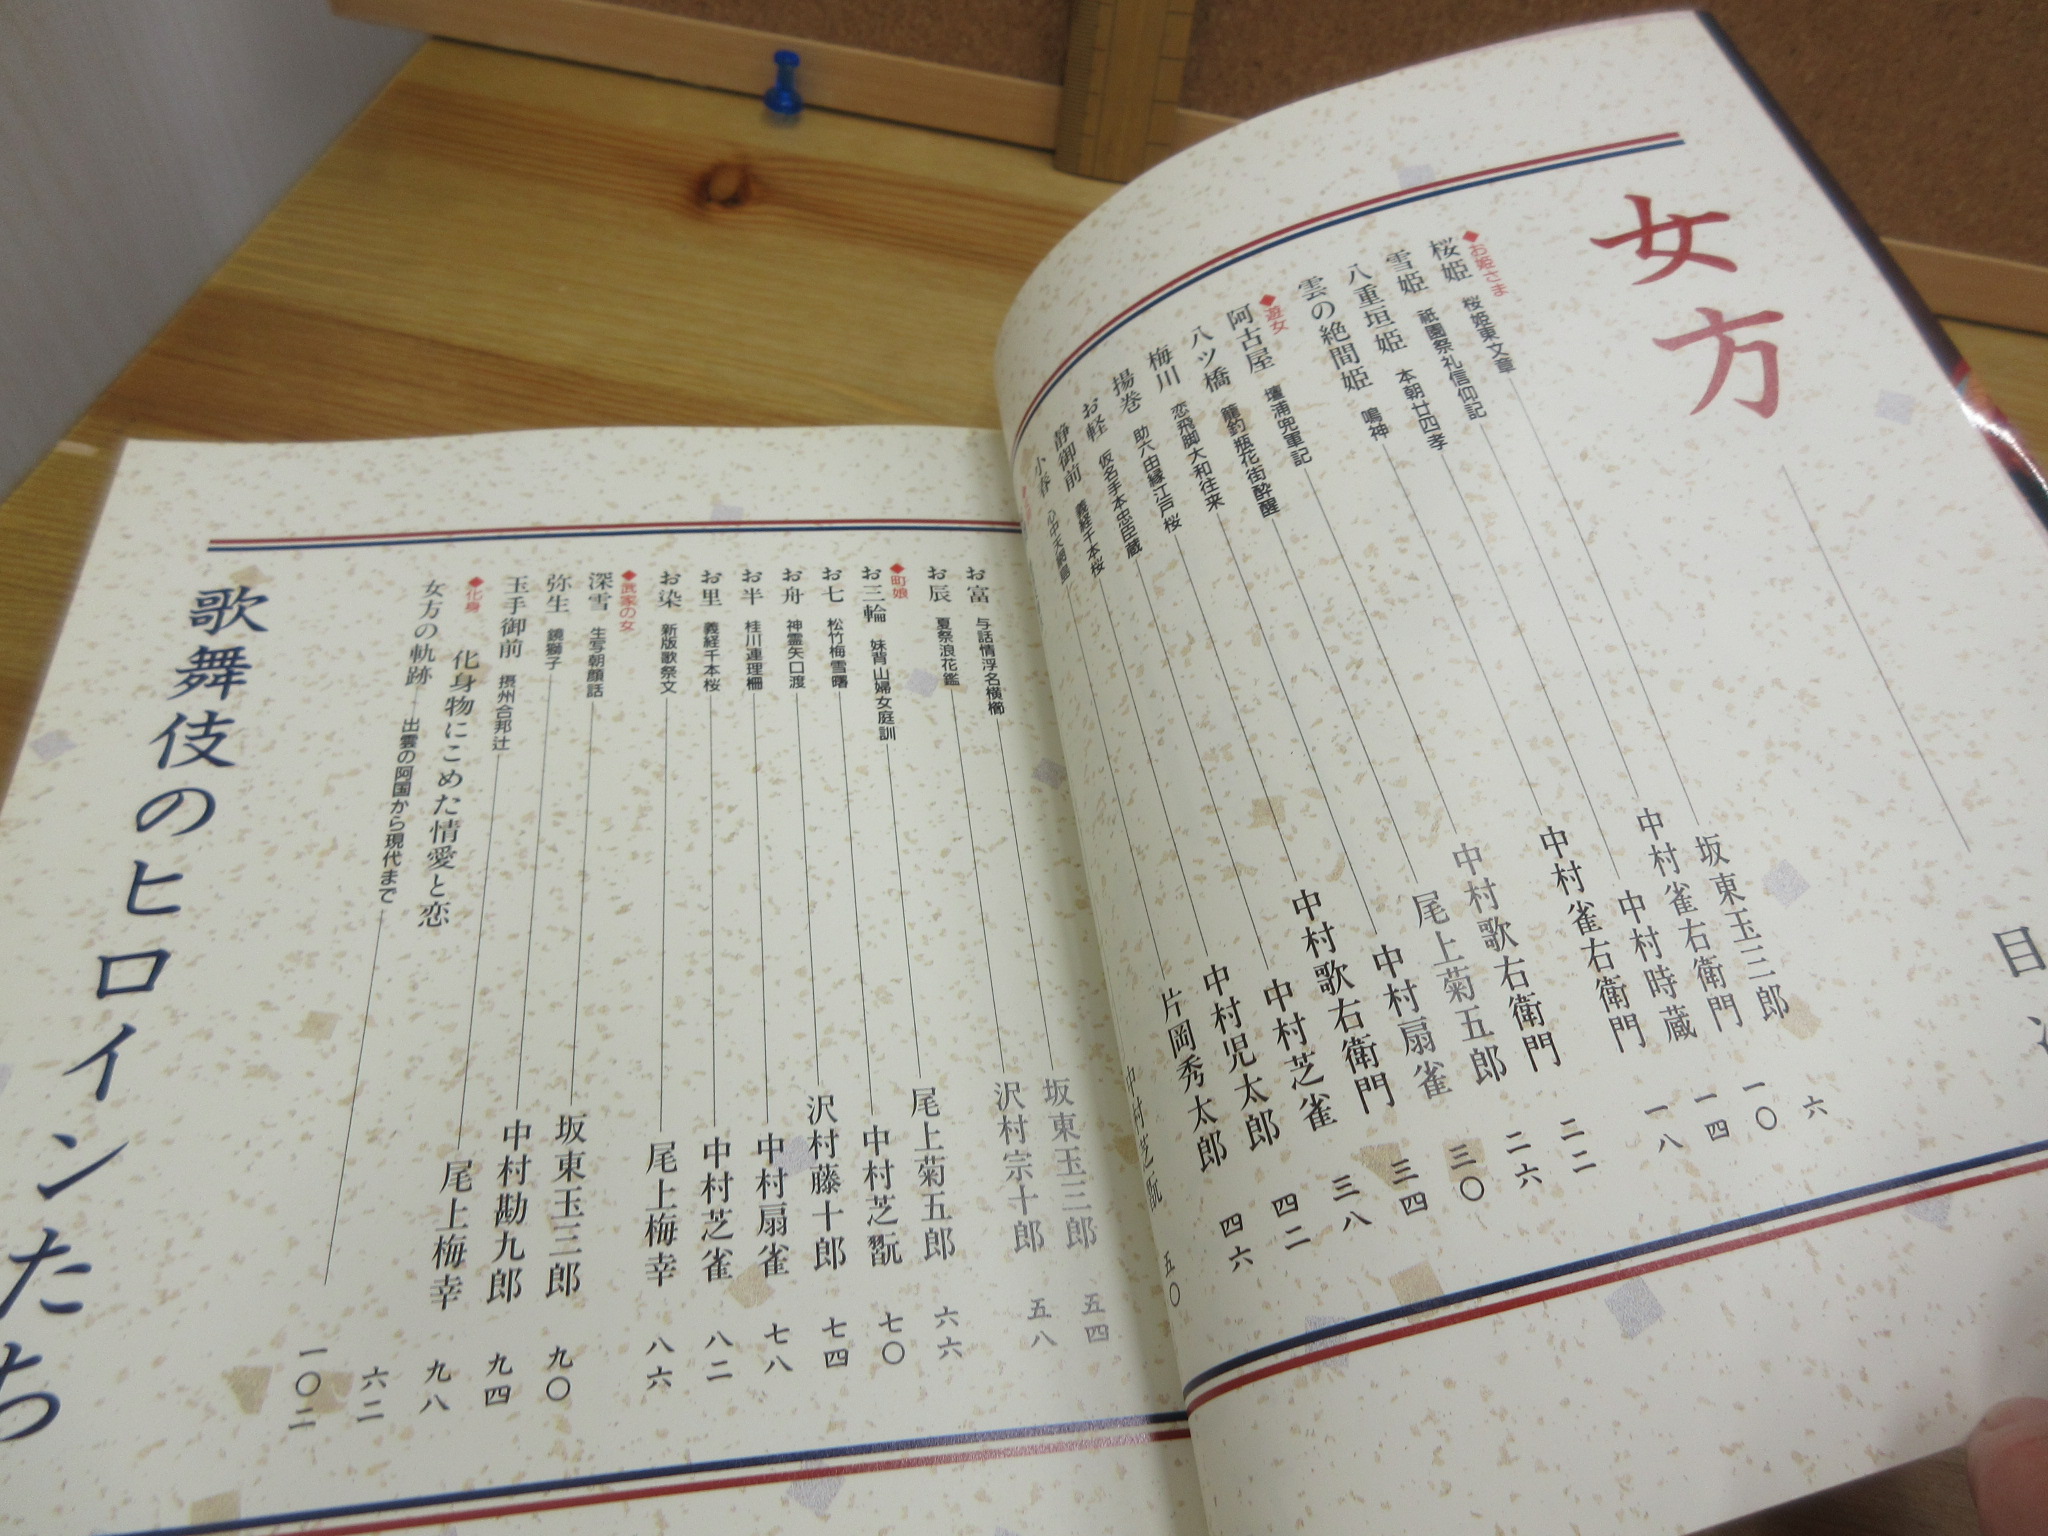 女方
目
六
◆お姫さま
桜姫 桜姫東文章 坂東玉三郎 一〇
雪姫 祇園祭礼信仰記 中村雀右衛門 一四
八重垣姫 本朝廿四孝 中村時蔵 一八
雲の絶間姫 鳴神 中村雀右衛門 二二
◆遊女
阿古屋 壇浦兜軍記 中村歌右衛門 二六
八ツ橋 籠釣瓶花街酔醒 尾上菊五郎 三〇
梅川 恋飛脚大和往来 中村扇雀 三四
揚巻 助六由縁江戸桜 中村歌右衛門 三八
お軽 仮名手本忠臣蔵 中村芝雀 四二
静御前 義経千本桜 中村児太郎 四六
小春 心中天網島 片岡秀太郎
中村芝翫 五〇
お富 与話情浮名横櫛 坂東玉三郎 五四
お辰 夏祭浪花鑑 沢村宗十郎 五八
◆町娘
お三輪 妹背山婦女庭訓 尾上菊五郎 六六
お七 松竹梅雪曙 中村芝翫 七〇
お舟 神霊矢口渡 沢村藤十郎 七四
お半 桂川連理柵 中村扇雀 七八
お里 義経千本桜 中村芝雀 八二
お染 新版歌祭文 尾上梅幸 八六
◆武家の女
深雪 生写朝顔話 坂東玉三郎 九〇
弥生 鏡獅子 中村勘九郎 九四
玉手御前 摂州合邦辻 尾上梅幸 九八
◆化身 化身物にこめた情愛と恋 六二
女方の軌跡 出雲の阿国から現代まで 一〇二
歌舞伎のヒロインたち